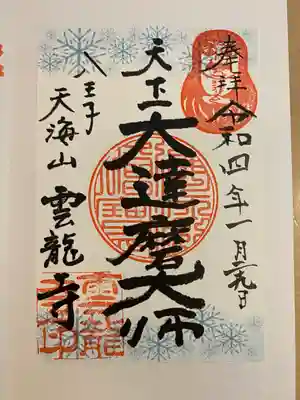 奉拝 令和四年一月二九日
天下一 大達磨大師
八王子
天海山 雲龍寺